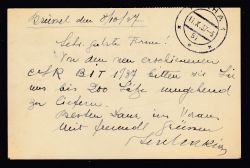 Brüssel den 8/10/37
Sehr geehrte Firma!
Von dem neu erschienenen
BIT 1937 bitten wir für
uns bis 200 Sätze umgehend
zu liefern.
Besten Dank im Voraus
Mit freundl Grüssen